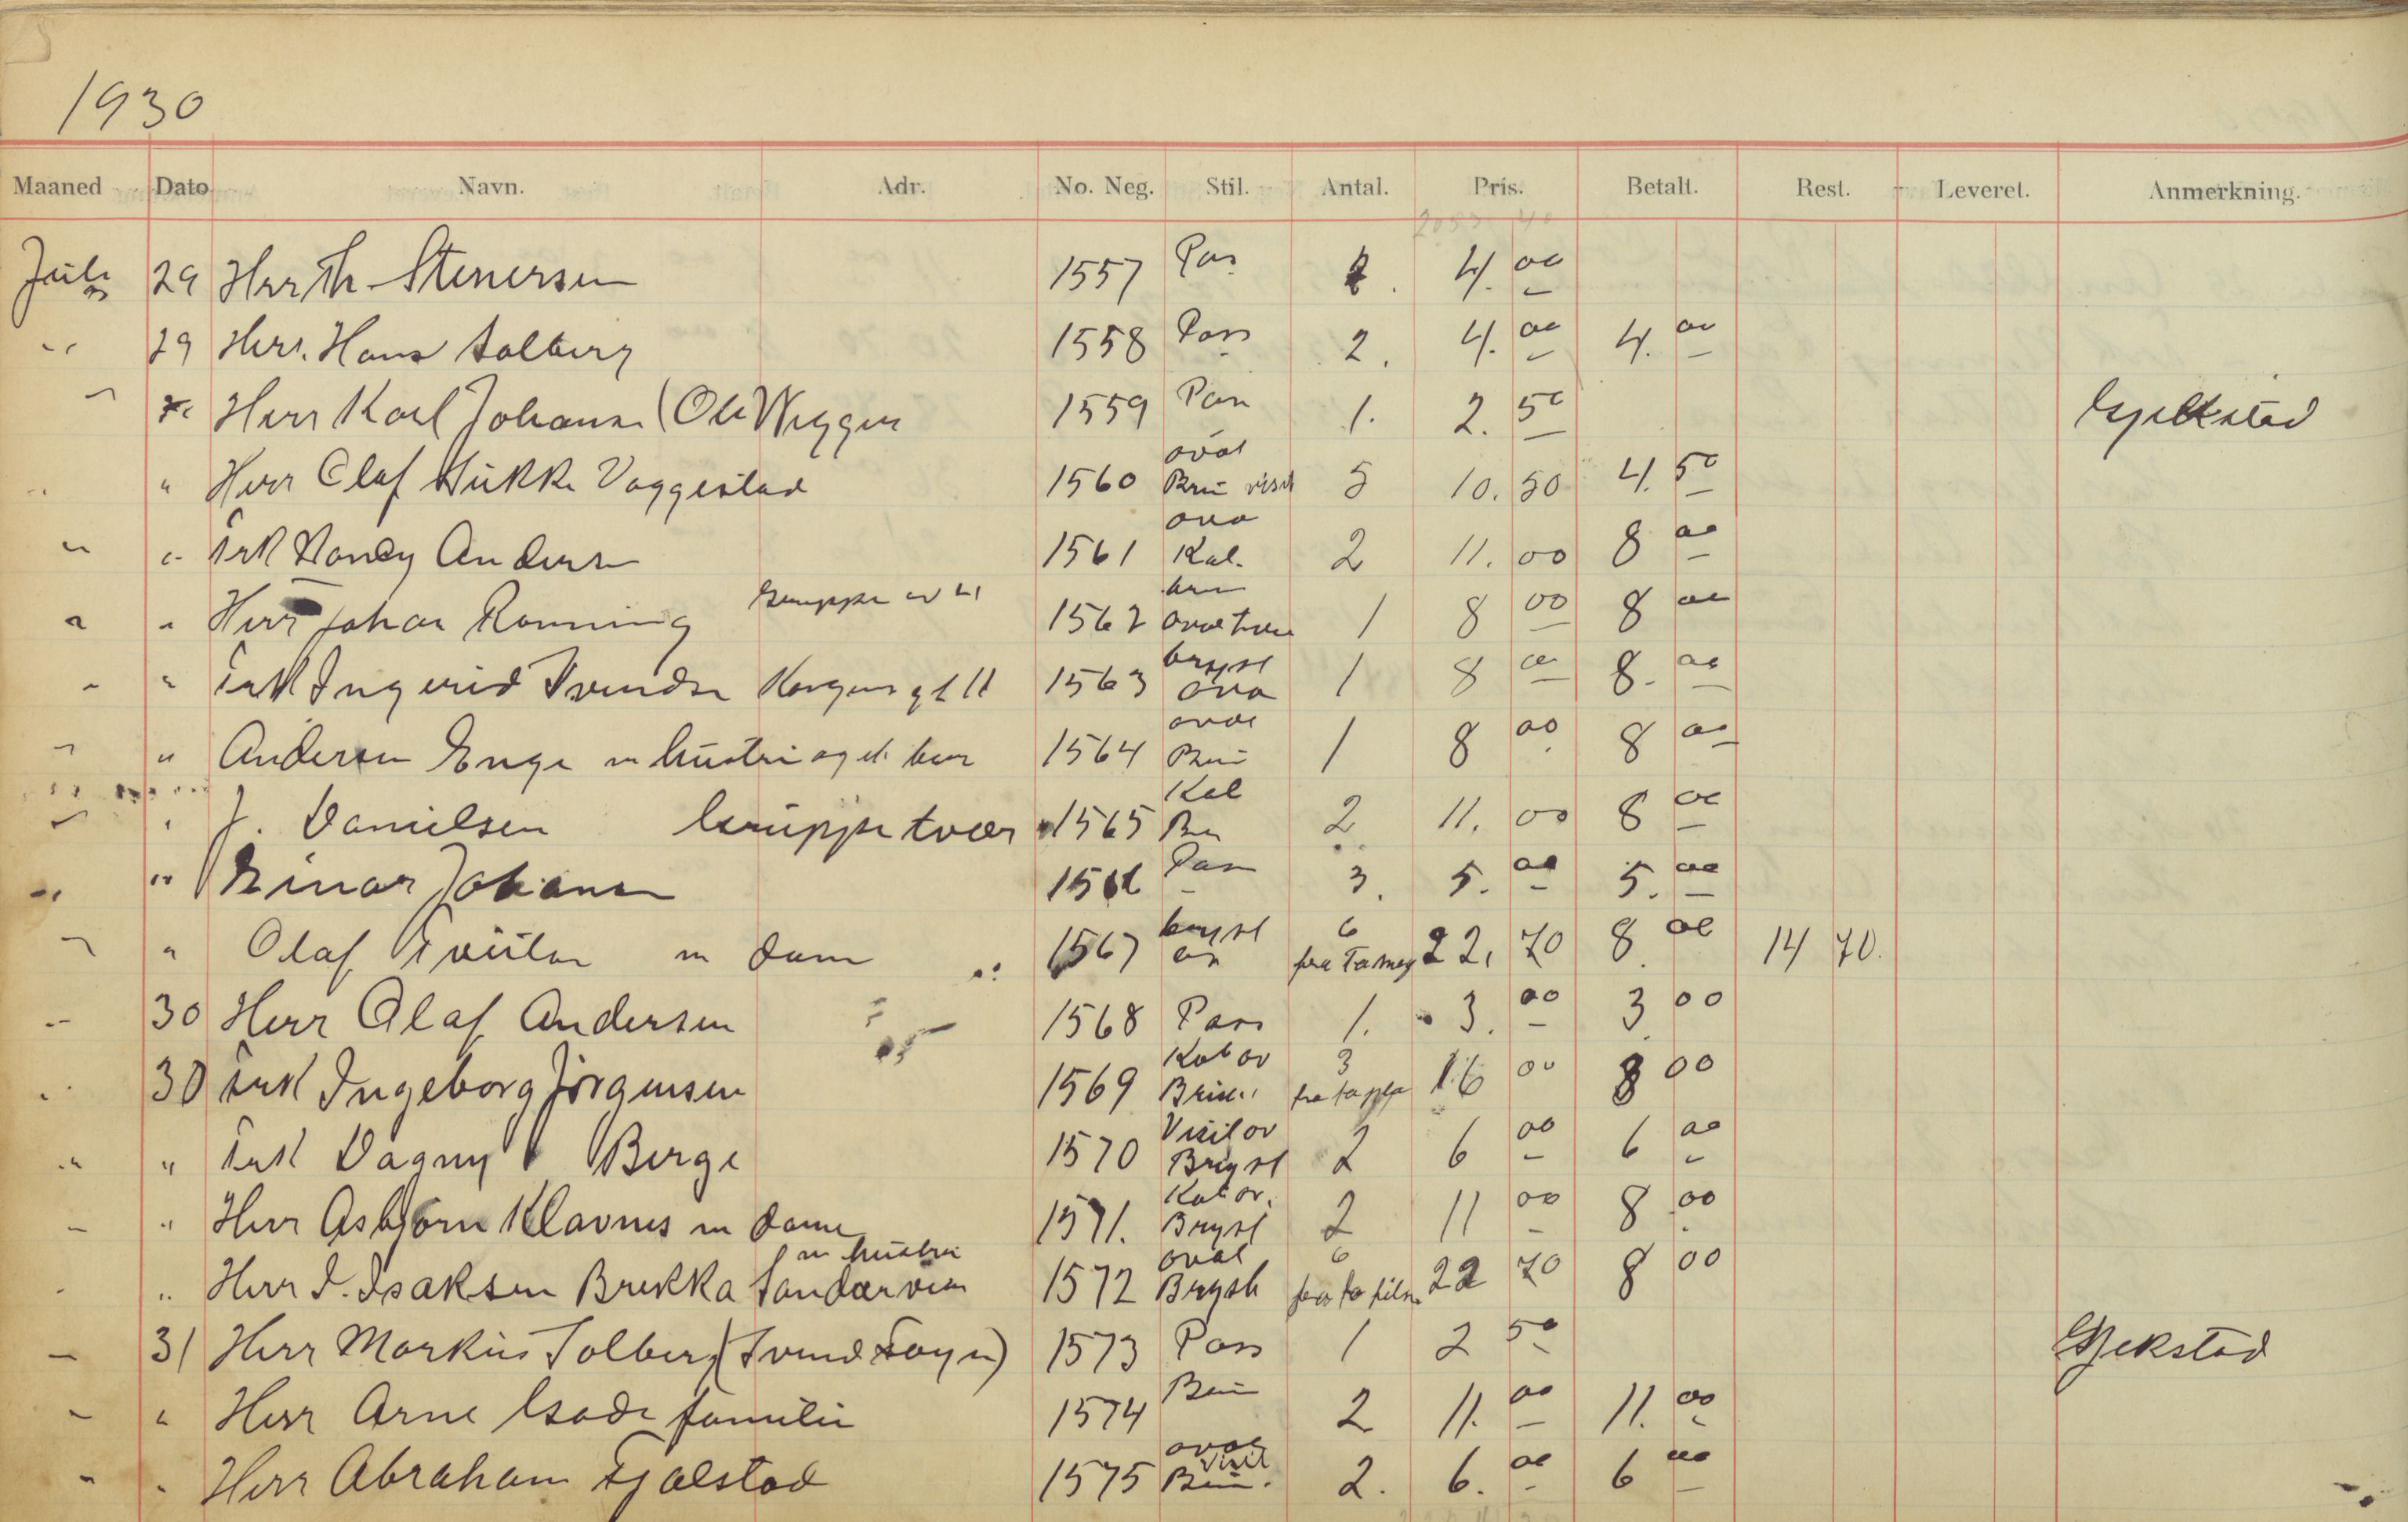 1930
Maaned Dato Navn. Adr. No. Neg. Stil. Antal. Pris. Betalt. Rest. Leveret. Anmerkning.
Juli 29 Herr Th. Stenersen 1557 Pas 2. 4. 00
" 29 Herr. Hans Solberg 1558 Pass 2. 4. 00 4. 00
" " Herr Karl Johansen (Ole Wegger 1559 Pass 1. 2. 50 Gjekstad
" " Herr Olaf Hukke Vaggestad 1560 oval Brun visit 5 10. 50 4. 50
" " Frk Nancy Anders 1561 ova Kab. 2 11. 00 8 00
" " Herr Johan Rønning Gruppe av 4 1562 brun oval tver 1 8 00 8 00
" " Frk Ingerid Svendsen Kongensgt 11 1563 bryst ova 1 8 00 8. 00
" " Andersen Enge m hustru og et barn 1564 oval Brun 1 8 00 8 00
" " J. Danielsen Gruppe tvær 1565 Kab Bru 2 11. 00 8 00
" " Einar Johansen 1566 Pass 3. 5. 00 5. 00
" " Olaf m dame 1567 bryst ov 6 fra 22. 70 8. 00 14 70.
" 30 Herr Olaf Andersen 1568 Pass 1. 3. 00 3 00
" 30 Frk Ingeborg Jørgensen 1569 Kab ov 3 16 00 8 00
" " Frk Dagny Berge 1570 Visit ov Bryst 2 6 00 6 00
" " Herr Asbjørn Klavnes m dame 1571. Kab ov. Bryst 2 11 00 8 00
m hustru
" " Herr I. Isaksen Brekka Sandarveien 1572 oval Bryst 6 22 70 8 00
" 31 Herr Markus Solberg (Svend Foyn) 1573 Pass 1 2 50 Gjekstad
" " Herr Arne Gade familie 1574 Brun 2 11. 00 11. 00
" " Herr Abraham Fjælstad 1575 oval visit Brun. 2. 6. 00 6 00